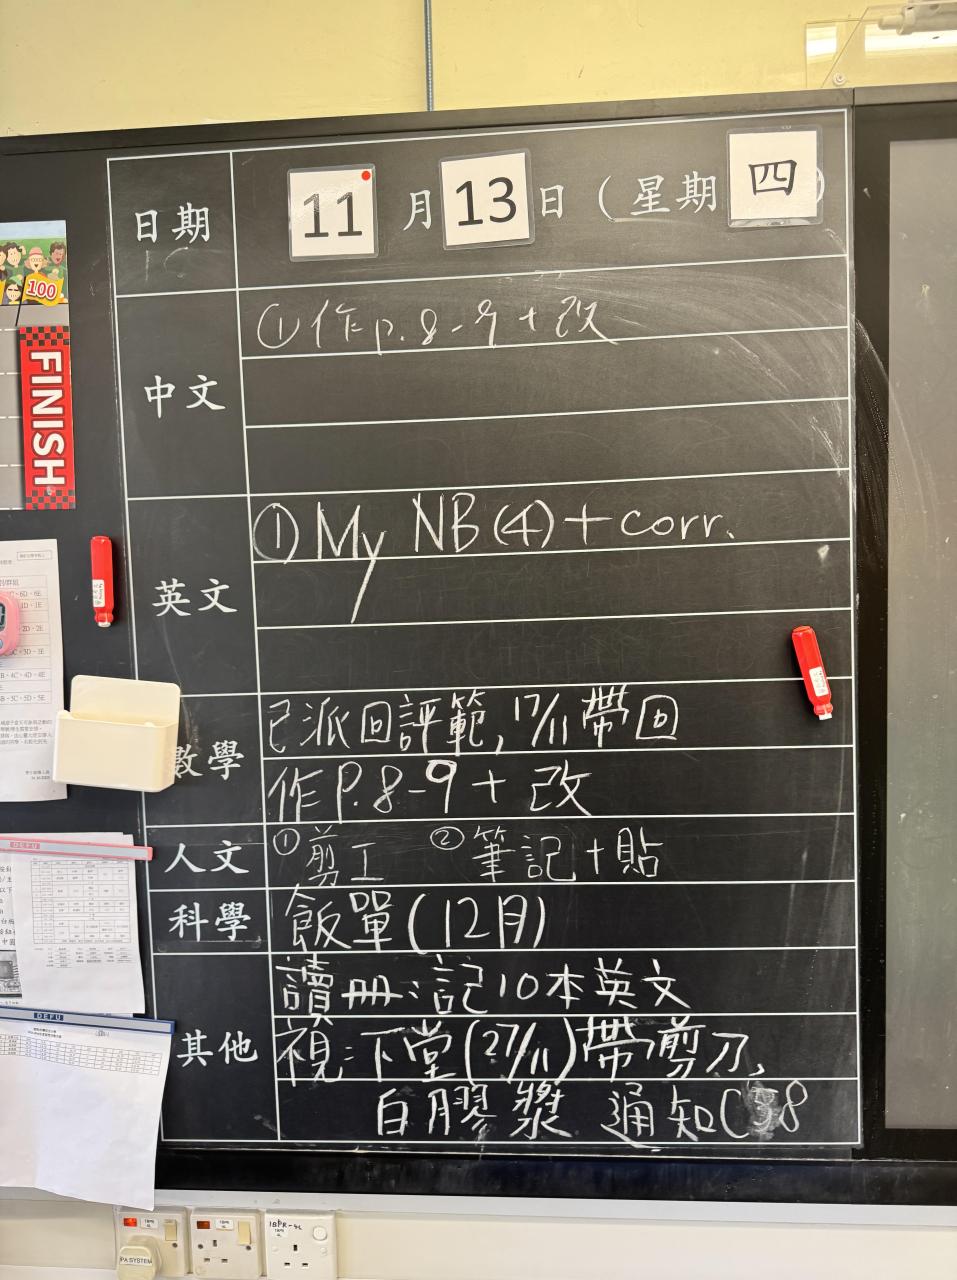 日期 11 月 13 日 (星期 四 )
中文
①作p.8-9+改
英文
①My NB(4)+corr.
數學
已派回評範, 17/11帶回
作P.8-9+改
人文
①剪工 ②筆記+貼
科學
飯單(12月)
其他
讀冊:記10本英文
視:下堂(27/11)帶剪刀,
白膠漿 通知C58
100
FINISH
DEFU
DEFU
PA SYSTEM